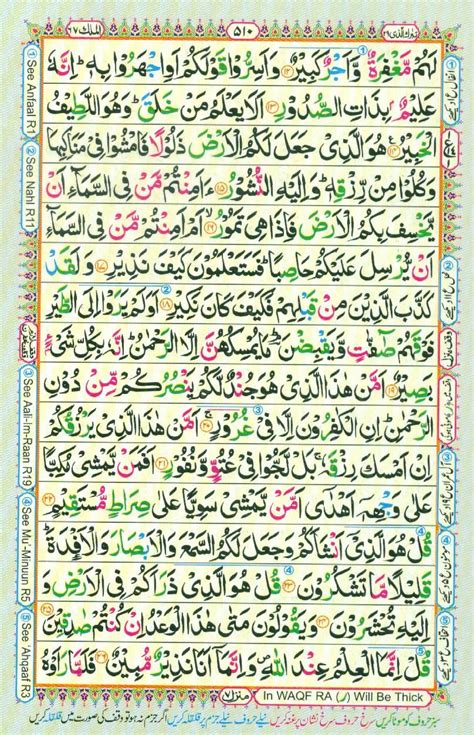 الملك ٦٧
٥١٠
تبرك الذی ٢٩
لَهُمْ مَّغْفِرَةٌ وَّاَجْرٌ كَبِيْرٌ ﴿١٢﴾ وَاَسِرُّوْا قَوْلَكُمْ اَوِ اجْهَرُوْا بِهٖ ؕ اِنَّهٗ
عَلِيْمٌۢ بِذَاتِ الصُّدُوْرِ ﴿١٣﴾ اَلَا يَعْلَمُ مَنْ خَلَقَ ؕ وَهُوَ اللَّطِيْفُ
الْخَبِيْرُ ﴿١٤﴾ هُوَ الَّذِيْ جَعَلَ لَكُمُ الْاَرْضَ ذَلُوْلًا فَامْشُوْا فِيْ مَنَاكِبِهَا
وَكُلُوْا مِنْ رِّزْقِهٖ ؕ وَاِلَيْهِ النُّشُوْرُ ﴿١٥﴾ ءَاَمِنْتُمْ مَّنْ فِي السَّمَآءِ اَنْ
يَّخْسِفَ بِكُمُ الْاَرْضَ فَاِذَا هِيَ تَمُوْرُ ﴿١٦﴾ اَمْ اَمِنْتُمْ مَّنْ فِي السَّمَآءِ
اَنْ يُّرْسِلَ عَلَيْكُمْ حَاصِبًا ؕ فَسَتَعْلَمُوْنَ كَيْفَ نَذِيْرِ ﴿١٧﴾ وَلَقَدْ
كَذَّبَ الَّذِيْنَ مِنْ قَبْلِهِمْ فَكَيْفَ كَانَ نَكِيْرِ ﴿١٨﴾ اَوَلَمْ يَرَوْا اِلَى الطَّيْرِ
فَوْقَهُمْ صٰٓفّٰتٍ وَّيَقْبِضْنَ ؕ مَا يُمْسِكُهُنَّ اِلَّا الرَّحْمٰنُ ؕ اِنَّهٗ بِكُلِّ شَيْءٍۢ
بَصِيْرٌ ﴿١٩﴾ اَمَّنْ هٰذَا الَّذِيْ هُوَ جُنْدٌ لَّكُمْ يَنْصُرُكُمْ مِّنْ دُوْنِ
الرَّحْمٰنِ ؕ اِنِ الْكٰفِرُوْنَ اِلَّا فِيْ غُرُوْرٍ ﴿٢٠﴾ اَمَّنْ هٰذَا الَّذِيْ يَرْزُقُكُمْ
اِنْ اَمْسَكَ رِزْقَهٗ ۚ بَلْ لَّجُّوْا فِيْ عُتُوٍّ وَّنُفُوْرٍ ﴿٢١﴾ اَفَمَنْ يَّمْشِيْ مُكِبًّا
عَلٰى وَجْهِهٖٓ اَهْدٰٓى اَمَّنْ يَّمْشِيْ سَوِيًّا عَلٰى صِرَاطٍ مُّسْتَقِيْمٍ ﴿٢٢﴾
قُلْ هُوَ الَّذِيْٓ اَنْشَاَكُمْ وَجَعَلَ لَكُمُ السَّمْعَ وَالْاَبْصَارَ وَالْاَفْـِٕدَةَ ؕ
قَلِيْلًا مَّا تَشْكُرُوْنَ ﴿٢٣﴾ قُلْ هُوَ الَّذِيْ ذَرَاَكُمْ فِي الْاَرْضِ وَ
اِلَيْهِ تُحْشَرُوْنَ ﴿٢٤﴾ وَيَقُوْلُوْنَ مَتٰى هٰذَا الْوَعْدُ اِنْ كُنْتُمْ صٰدِقِيْنَ ﴿٢٥﴾
قُلْ اِنَّمَا الْعِلْمُ عِنْدَ اللّٰهِ ۪ وَاِنَّمَآ اَنَا نَذِيْرٌ مُّبِيْنٌ ﴿٢٦﴾ فَلَمَّا رَاَوْهُ
① See Anfaal R1
② See Nahl R11
③ See Aali-Im-Raan R19
④ See Mu'-Minuun R5
⑤ See 'Ahqaaf R3
منزل ٧
In WAQF RA (ر) Will Be Thick
سبز حروف کو موٹا کریں سرخ حروف سرخ نشان پر غنہ کریں نیلے حروف نیلے جزم پر قلقلہ کریں اگر جزم نہ ہو تو وقف کی صورت میں قلقلہ کریں